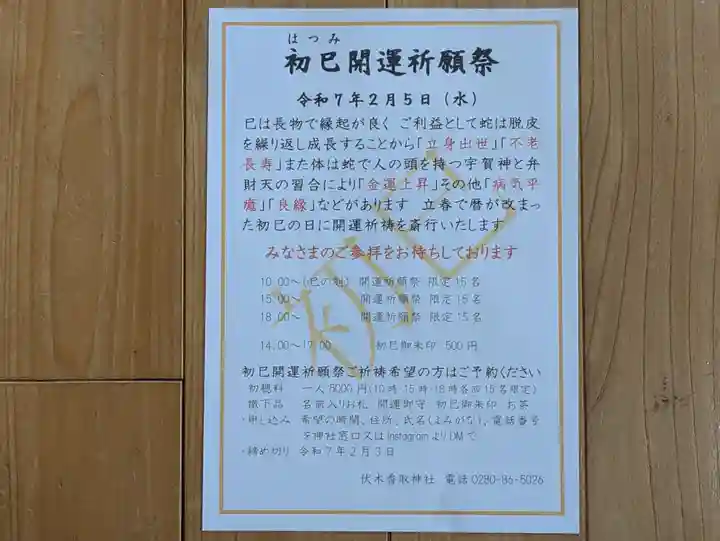 はつみ
初巳開運祈願祭
令和7年2月5日(水)
巳は長物で縁起が良く ご利益として蛇は脱皮
を繰り返し成長することから「立身出世」「不老
長寿」また体は蛇で人の頭を持つ宇賀神と弁
財天の習合により「金運上昇」その他「病気平
癒」「良縁」などがあります 立春で暦が改まっ
た初巳の日に開運祈祷を斎行いたします
みなさまのご参拝をお待ちしております
10:00~(巳の刻) 開運祈願祭 限定15名
15:00~ 開運祈願祭 限定15名
18:00~ 開運祈願祭 限定15名
14:00~17:00 初巳御朱印 500円
初巳開運祈願祭ご祈祷希望の方はご予約ください
初穂料 一人5000円(10時・15時・18時各回15名限定)
撤下品 名前入りお札 開運御守 初巳御朱印 お茶
・申し込み 希望の時間、住所、氏名(よみがな)、電話番号
を神社窓口又はInstagramよりDMで
・締め切り 令和7年2月3日
伏木香取神社 電話0280-86-5026
初巳